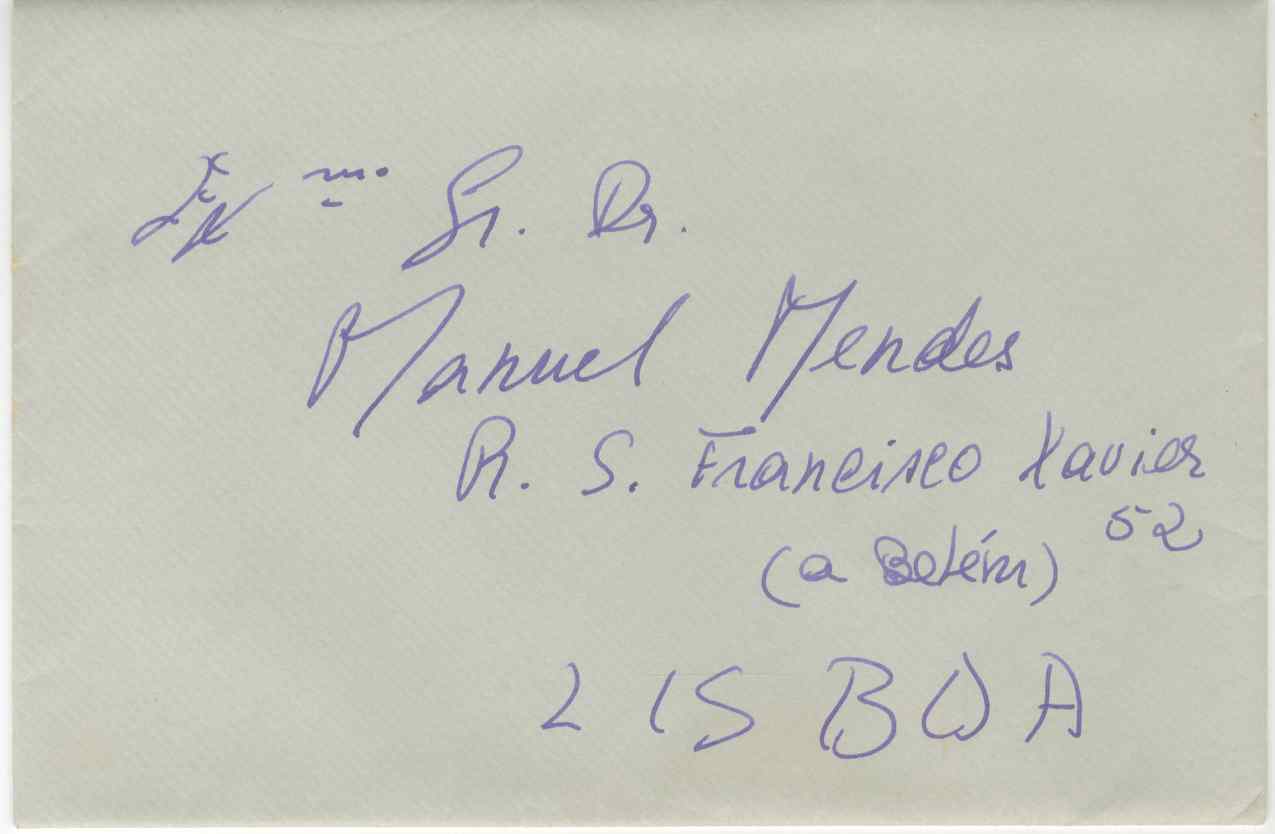 Exmo. Sr. Dr.
Manuel Mendes
R. S. Francisco Xavier
52
(a Belém)
LISBOA